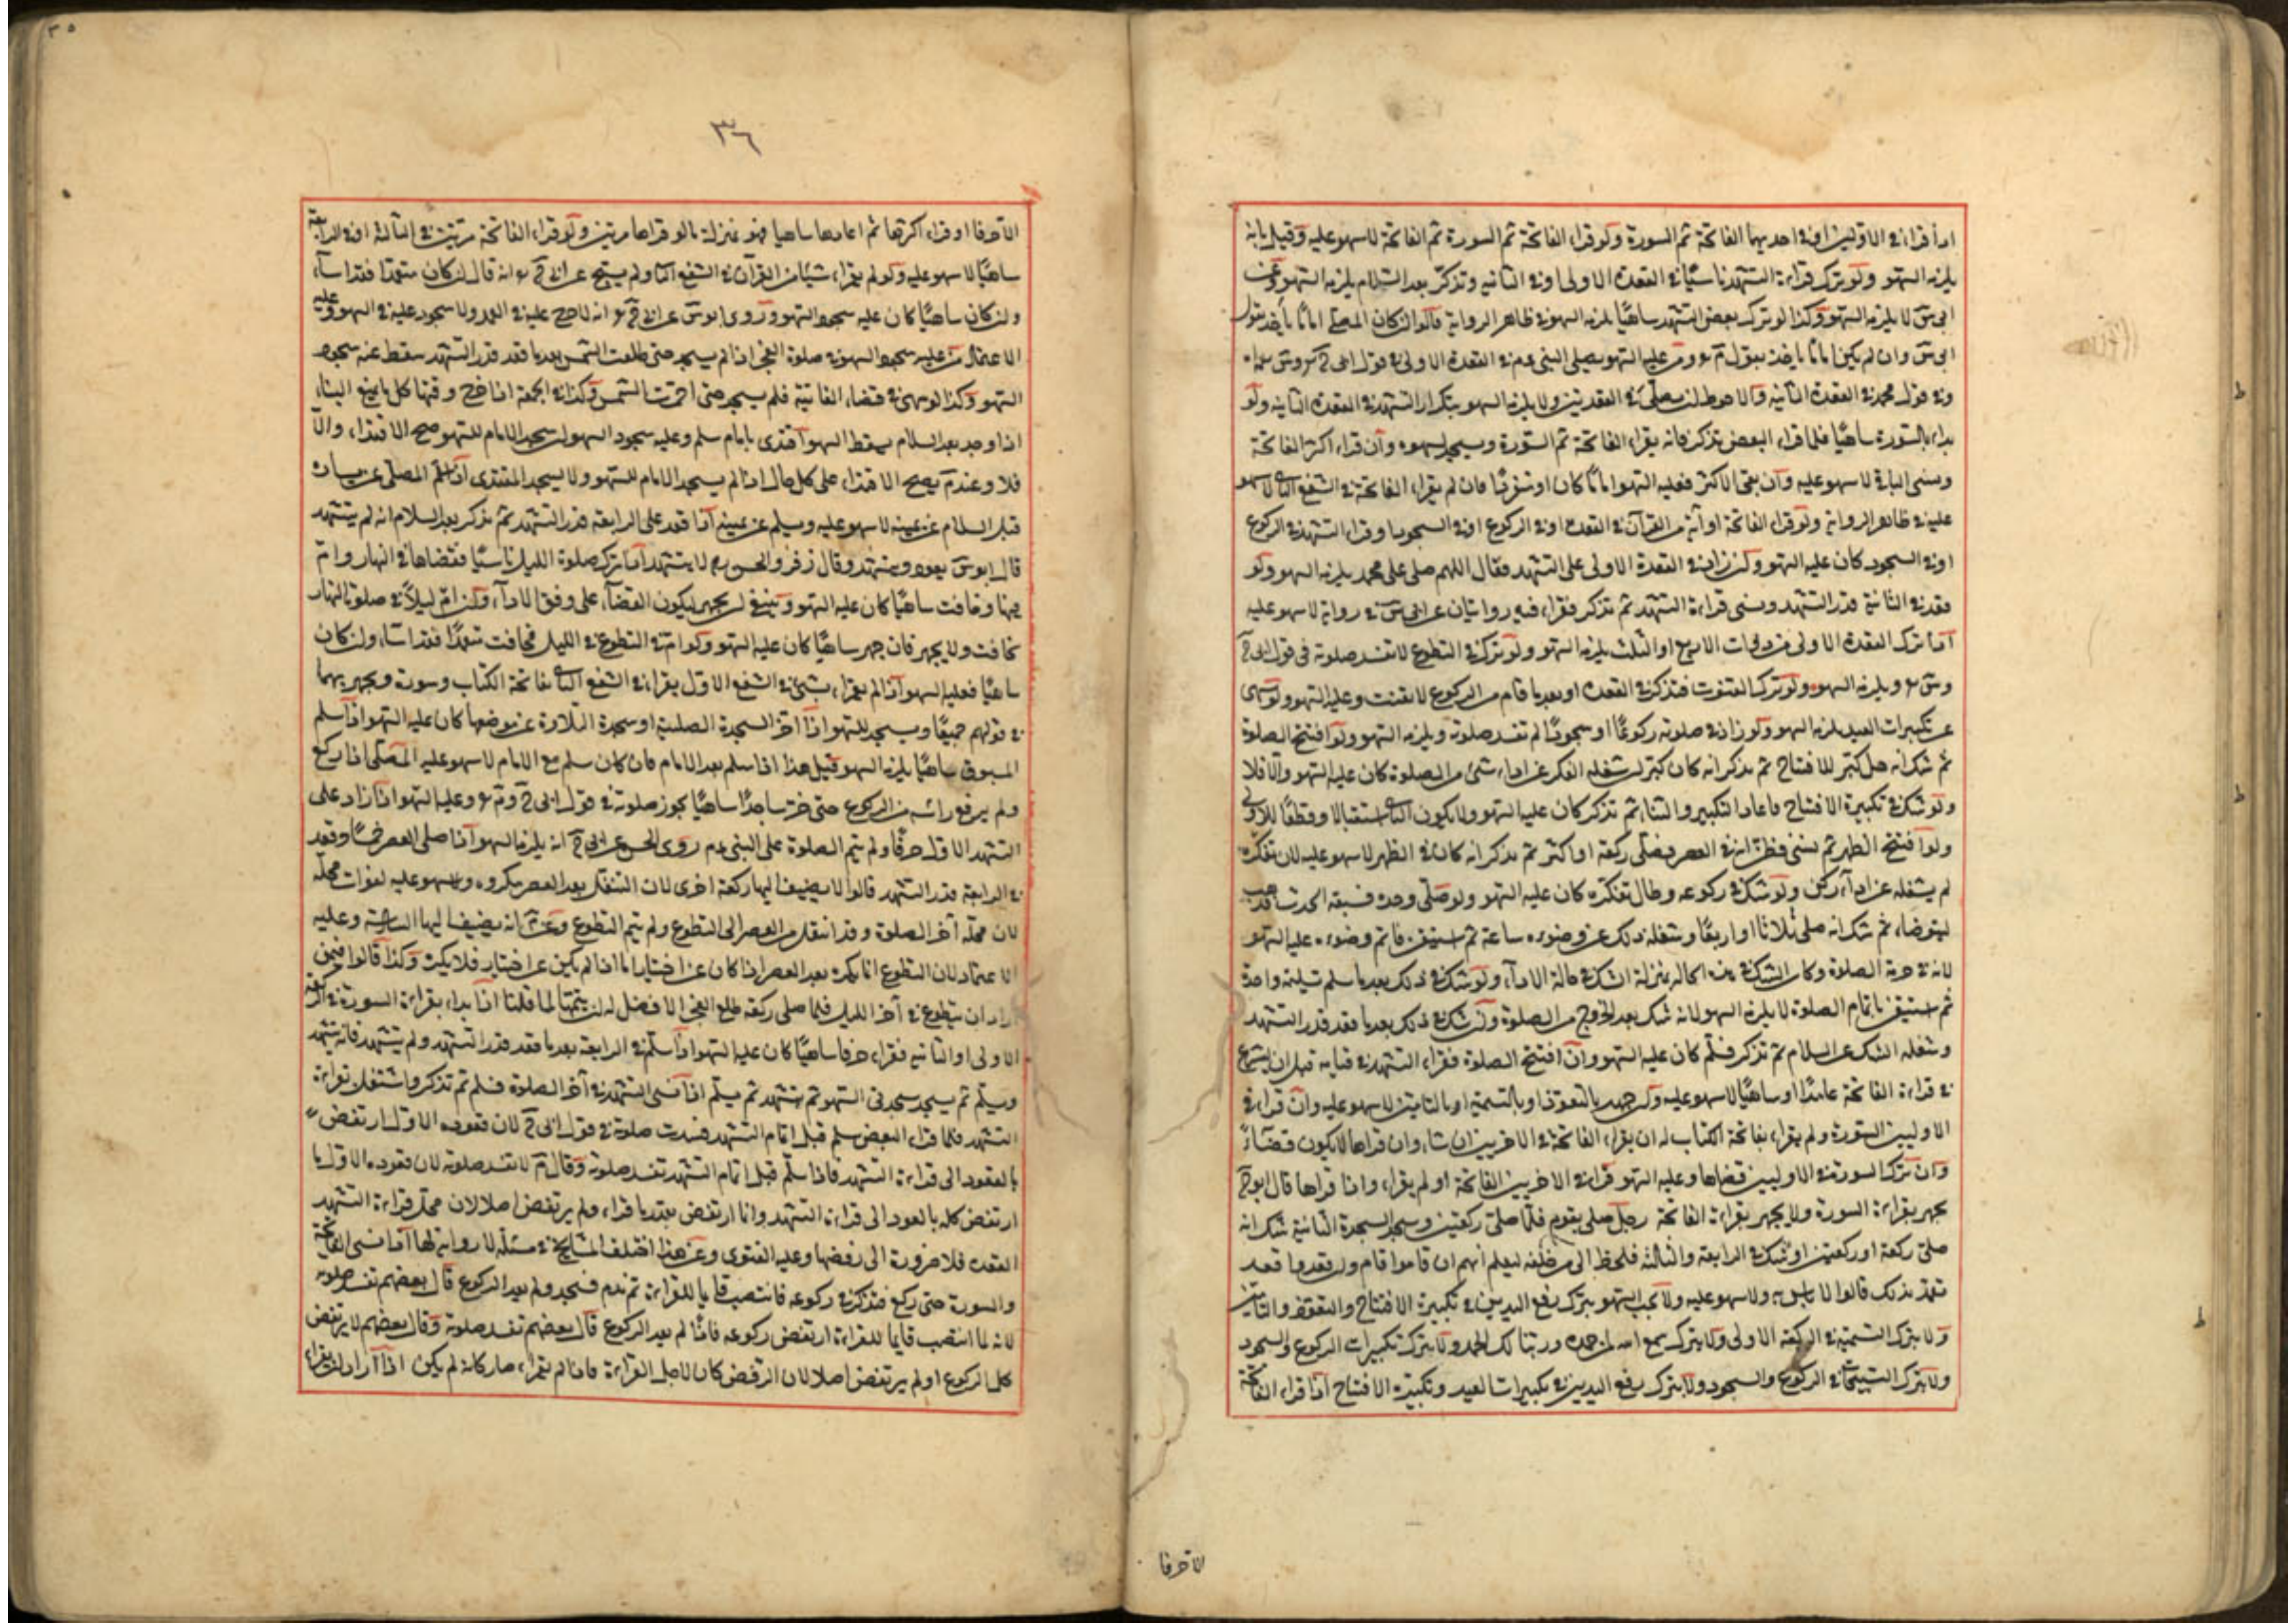 اذا قراء في الاوليين او في احديهما الفاتحة ثم السورة ولو قراء الفاتحة ثم السورة ثم الفاتحة لا سهو عليه وقيل بانه
يلزمه السهو ولو ترك قراءة التشهد ناسيًا في القعدة الاولى او في الثانيه وتذكر بعد السلام يلزمه السهو وعن
ابى س لا يلزمه السهو وكذا لو ترك بعض التشهد ساهيًا يلزمه السهو في ظاهر الرواية قالوا ان كان المصلى امامًا يأخذ بقول
ابى س وان لم يكن امامًا ياخذ بقول م ومن عليه السهو يصلى على النبى عم في القعدة الاولى في قول ابى ح و س
وفي قول محمد في القعدة الثانيه والاحوط ان يصلى في القعدتين ولا يلزمه السهو بتكرار التشهد في القعدة الثانيه ولو
بداء بالسورة ساهيًا فلما قراء البعض تذكر فانه يقراء الفاتحة ثم السورة ويسجد لسهوه وان قراء اكثر الفاتحة
ونسى الباقي لا سهو عليه وان بقى الاكثر فعليه السهو امامًا كان او منفردًا فان لم يقراء الفاتحة في الشفع الثانى لا سهو
عليه في ظاهر الرواية ولو قراء الفاتحة او آية من القرآن في القعدة او في الركوع او في السجود او قراء التشهد في الركوع
او في السجود كان عليه السهو ولئن زاد في القعدة الاولى على التشهد فقال اللهم صلى على محمد يلزمه السهو ولو
قعد في الثانية قدر التشهد ونسى قراءة التشهد ثم تذكر فقراء فيه روايتان عن ابى س في رواية لا سهو عليه
اذا ترك القعدة الاولى من ذوات الاربع او الثلث يلزمه السهو ولو ترك في التطوع لا تفسد صلوته في قول ابى ح
و س ويلزمه السهو ولو ترك القنوت فتذكر في القعدة او بعد ما قام من الركوع لا يقنت وعليه السهو ولو سهى
عن تكبيرات العيد يلزمه السهو ولو زاد في صلوته ركوعًا او سجودًا لم تفسد صلوته ويلزمه السهو ولو افتتح الصلوة
ثم شك انه هل كبر للافتتاح ثم تذكر انه كان كبر ان شغله الفكر عن اداء شئ من الصلوة كان عليه السهو والا فلا
ولو شك في تكبيرة الافتتاح فاعاد التكبير والثناء ثم تذكر كان عليه السهو ولا يكون الثانى استقبالا وقطعًا للاول
ولو افتتح الظهر ثم نسى فظن انه في العصر فصلى ركعة او اكثر ثم تذكر انه كان في الظهر لا سهو عليه لان تفكره
لم يشغله عن اداء ركن ولو شك في ركوعه وطال تفكره كان عليه السهو ولو صلى وحده فسبقه الحدث فذهب
ليتوضاء ثم شك انه صلى ثلاثا او اربعًا وشغله ذلك عن وضوءه ساعة ثم استيقن فاتم وضوءه عليه السهو
لانه في حرمة الصلوة وكان الشك في هذه الحالة بمنزلة الشك في حالة الاداء ولو شك في ذلك بعد ما سلم تسليمة واحدة
ثم استيقن باتمام الصلوة لا يلزمه السهو لانه شك بعد الخروج من الصلوة وان شك في ذلك بعد ما قعد قدر التشهد
وشغله الشك عن السلام ثم تذكر فسلم كان عليه السهو وان افتتح الصلوة فقراء التشهد في قيامه قبل ان يشرع
في قراءة الفاتحة عامدًا او ساهيًا لا سهو عليه ولئن جهر بالتعوذ او بالتسمية او بالتامين لا سهو عليه وان قراء في
الاوليين السورة ولم يقراء بفاتحة الكتاب له ان يقراء الفاتحة في الاخريين ان شاء وان قراها لا يكون قضاءً
وان ترك السورة في الاوليين قضاها وعليه السهو قراء في الاخريين الفاتحة او لم يقراء واذا قراها قال ابو ح
يجهر بقراءة السورة ولا يجهر بقراءة الفاتحة رجل صلى بقوم فلما صلى ركعتين وسجد السجدة الثانية شك انه
صلى ركعة او ركعتين او شك في الرابعة والثالثة فلحظ الى من خلفه ليعلم انهم ان قاموا قام وان قعدوا قعد
تعمد بذلك قالوا لا باس به ولا سهو عليه ولا يجب السهو بترك رفع اليدين في تكبيرة الافتتاح والتعوذ والتامين
ولا بترك التسمية في الركعة الاولى ولا بترك سمع الله لمن حمده وربنا لك الحمد ولا بترك تكبيرات الركوع والسجود
ولا بترك التسبيحات في الركوع والسجود ولا بترك رفع اليدين في تكبيرات العيد وتكبيرة الافتتاح اذا قراء الفاتحة
الا حرفا
٣٥
٣٦
الا حرفا او قراء اكثرها ثم اعادها ساهيا فهو بمنزلة ما لو قراها مرتين ولو قراء الفاتحة مرتين في الثالثة او في الرابعة
ساهيًا لا سهو عليه ولو لم يقراء شيئا من القرآن في الشفع الثانى ولم يسبح عن ابى ح انه قال ان كان متعمدًا فقد اساء
وان كان ساهيًا كان عليه سجود السهو وروى ابو س عن ابى ح انه لا حرج عليه في العمد ولا سجود عليه في السهو وعليه
الاعتماد من عليه سجود السهو في صلوة الفجر اذا لم يسجد حتى طلعت الشمس بعد ما قعد قدر التشهد سقط عنه سجود
السهو وكذا لو سهى في قضاء الفائتة فلم يسجد حتى احمرت الشمس وكذا في الجمعة اذا خرج وقتها كل ما يمنع البناء
اذا وجد بعد السلام يسقط السهو اقتدى بامام سلم وعليه سجود السهو ان سجد الامام للسهو صح الاقتداء والا
فلا وعند م يصح الاقتداء على كل حال اذا لم يسجد الامام للسهو ولا يسجد المقتدى اذا سلم المصلى عن يساره
قبل السلام عن يمينه لا سهو عليه ويسلم عن يمينه اذا قعد على الرابعة قدر التشهد ثم تذكر بعد السلام انه لم يتشهد
قال ابو س يعود ويتشهد وقال زفر والحسن لا يتشهد اذا ترك صلوة الليل ناسيًا فقضاها في النهار وام
فيها وخافت ساهيًا كان عليه السهو وينبغى ان يجهر ليكون القضاء على وفق الاداء ولئن ام ليلاً في صلوة النهار
يخافت ولا يجهر فان جهر ساهيًا كان عليه السهو ولو ام في التطوع في الليل فخافت متعمدًا فقد اساء وان كان
ساهيًا فعليه السهو اذا لم يقراء بشئ في الشفع الاول يقراء في الشفع الثانى بفاتحة الكتاب وسورة ويجهر بهما
في قولهم جميعًا ويسجد للسهو اذا اخر السجدة الصلبية او سجدة التلاوة عن موضعها كان عليه السهو اذا سلم
المسبوق ساهيًا يلزمه السهو قيل هذا اذا سلم بعد الامام فان كان سلم مع الامام لا سهو عليه المصلى اذا ركع
ولم يرفع راسه من الركوع حتى خر ساجدًا ساهيًا يجوز صلوته في قول ابى ح و م وعليه السهو اذا زاد على
التشهد الاول حرفًا ولم يتم الصلوة على النبى عم روى الحسن عن ابى ح انه يلزمه السهو اذا صلى العصر خمسًا وقعد
في الرابعة قدر التشهد قالوا لا يضيف اليها ركعة اخرى لان التنفل بعد العصر مكروه ولا سهو عليه لفوات محله
لان محله آخر الصلوة وقد انتقل من العصر الى التطوع ولم يتم التطوع وعن م انه يضيف اليها السادسة وعليه
الاعتماد لان التطوع انما يكره بعد العصر اذا كان عن اختيار اما اذا لم يكن عن اختيار فلا يكره وكذا قالوا فيمن
اراد ان يتطوع في آخر الليل فلما صلى ركعة طلع الفجر الافضل له ان يتمها لما قلنا اذا بداء بقراءة السورة في الركعة
الاولى او الثانيه فقراء حرفا ساهيًا كان عليه السهو اذا سلم في الرابعة بعد ما قعد قدر التشهد ولم يتشهد فانه يتشهد
ويسلم ثم يسجد سجدتى السهو ثم يتشهد ثم يسلم اذا نسى التشهد في آخر الصلوة فسلم ثم تذكر واشتغل بقراءة
التشهد فلما قراء البعض سلم قبل اتمام التشهد فسدت صلوته في قول ابى ح لان قعوده الاول ارتفض
بالعود الى قراءة التشهد فاذا سلم قبل اتمام التشهد تفسد صلوته وقال م لا تفسد صلوته لان قعوده الاول ما
ارتفض كله بالعود الى قراءة التشهد وانما ارتفض بقدر ما قراء ولم يرتفض اصلا لان محل قراءة التشهد
القعدة فلا ضرورة الى رفضها وعليه الفتوى وعن هذا اختلف المشايخ في مسئلة لا رواية لها اذا نسى الفاتحة
والسورة حتى ركع فتذكر في ركوعه فانتصب قايما للقراءة ثم ندم فسجد ولم يعد الركوع قال بعضهم تفسد صلوته
لانه لما انتصب قايما للقراءة ارتفض ركوعه فاذا لم يعد الركوع قال بعضهم تفسد صلوته وقال بعضهم لا يرتفض
كل الركوع او لم يرتفض اصلا لان الرفض كان لاجل القراءة فاذا لم يقراء صار كانه لم يكن اذا اراد ان يقراء